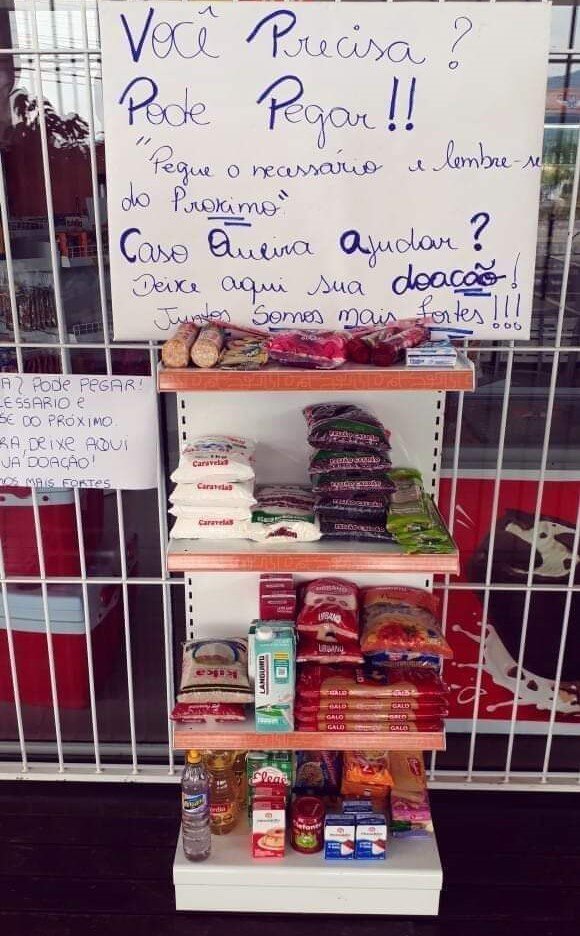 Você Precisa?
Pode Pegar!!
"Pegue o necessário e lembre-se
do Proximo"
Caso Queira ajudar?
Deixe aqui sua doacão!
Juntos Somos mais fortes!!!
A? PODE PEGAR!
CESSARIO e
SE DO PRÓXIMO.
RA, DEIXE AQUI
UA, DOAÇÃO!
MOS MAIS FORTES
Caravelas
Caravelas
Caravelas
FEIJÃO
URBANO
URBANO
Kika
LANGUIRU
GALO
GALO
GALO
GALO
Elegê
elefante